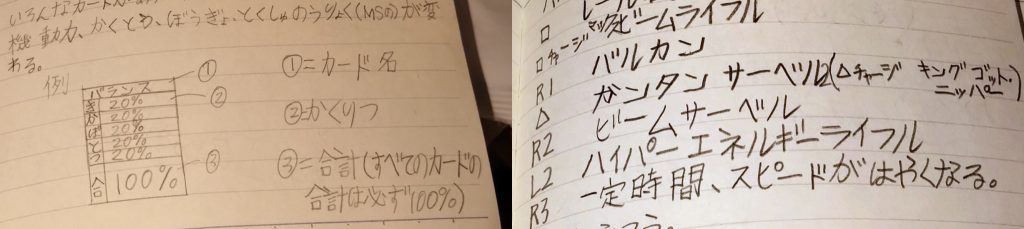 いろんなカードがあ
機動力、かくとう、ぼうぎょ、とくしゅのうりょく(MSの)が変
ある。
例
バランス
き 20%
か 20%
ぼ 20%
と 20%
う 20%
合 100%
①
②
③
①=カード名
②=かくりつ
③=合計(すべてのカードの
合計は必ず100%)
□ ビームライフル
□チャージ
R1 バルカン
△ ガンタン サーベル(△チャージ キングゴット・
ニッパー)
R2 ビームサーベル
L2 ハイパーエネルギーライフル
R3 一定時間、スピードがはやくなる。